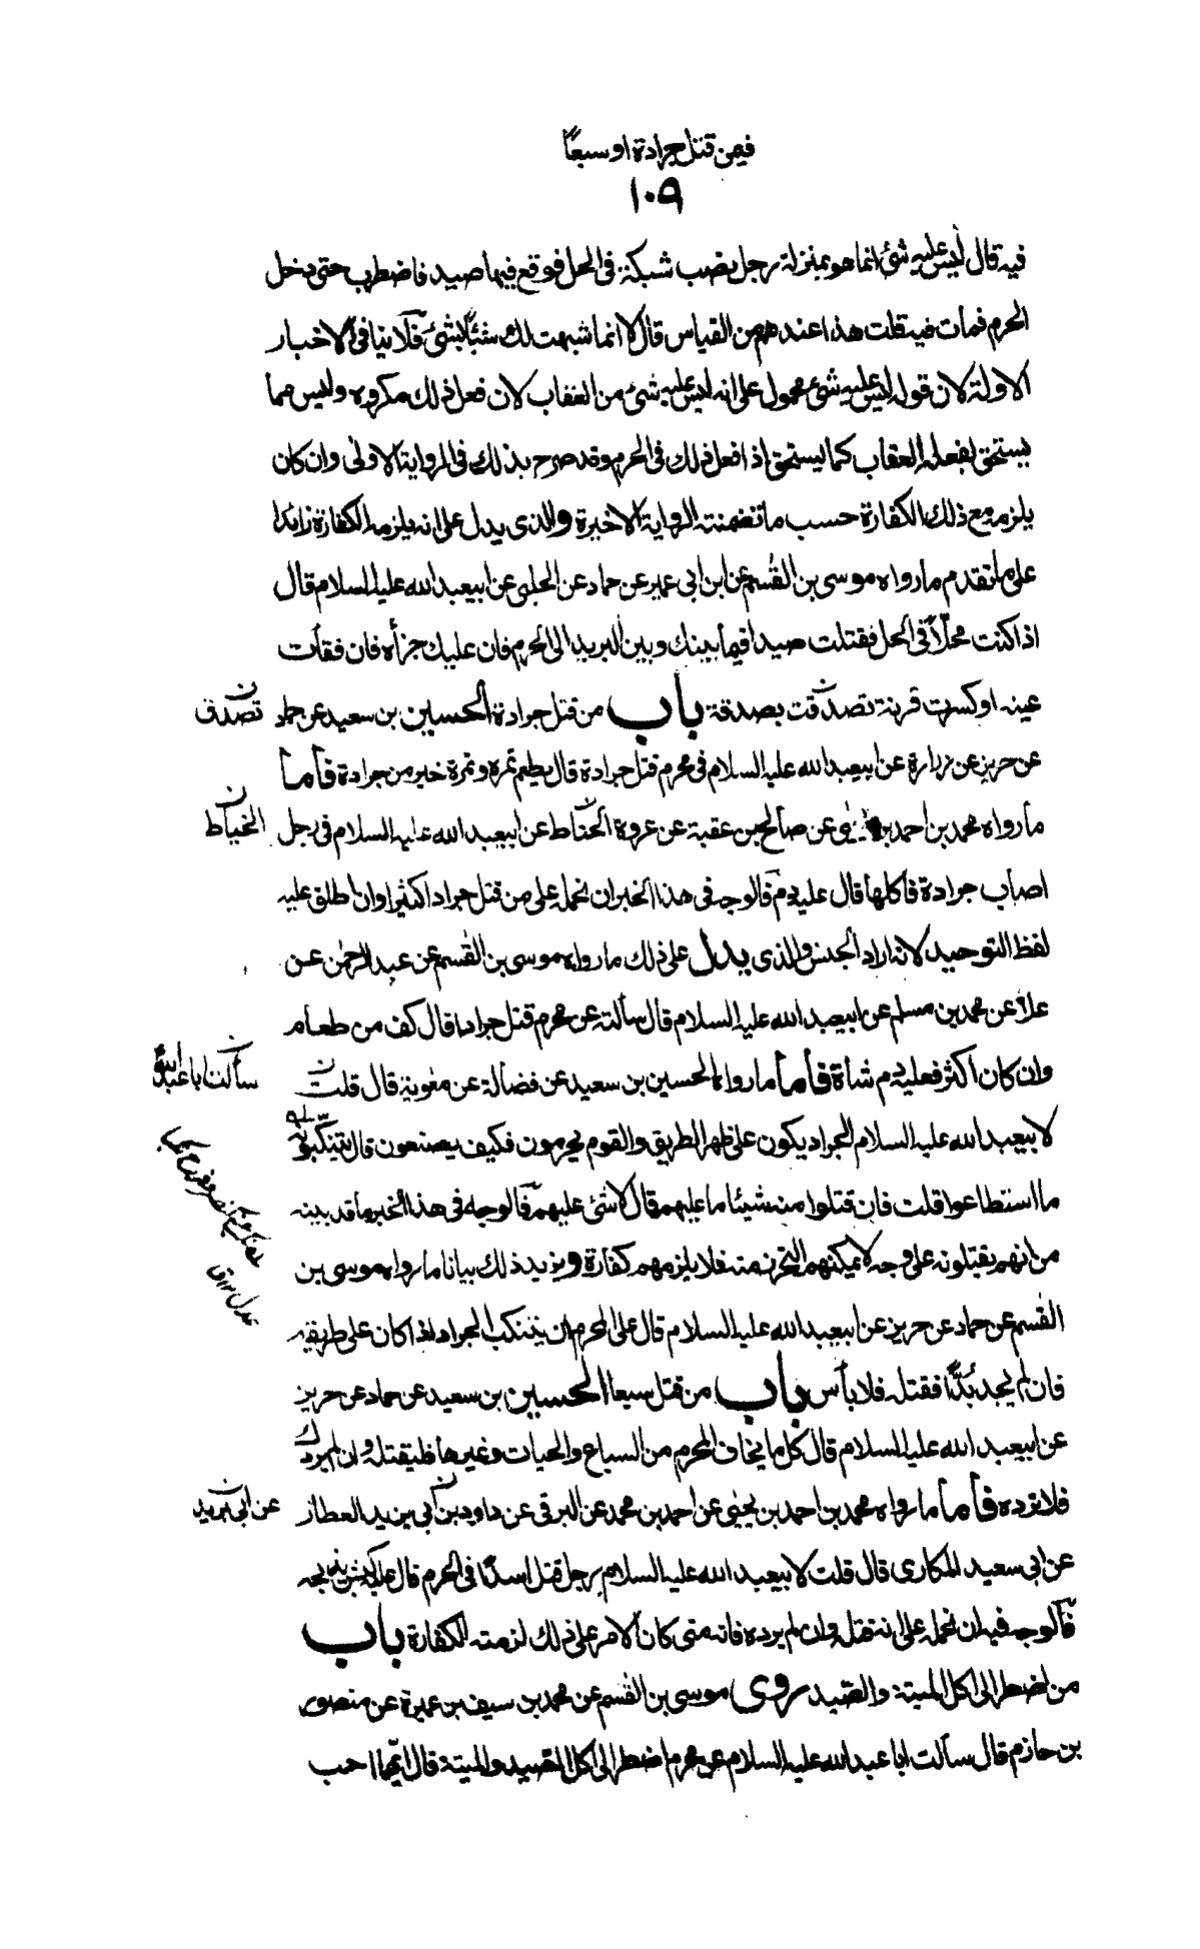 فيمن قتل جرادة او سبعاً
١٠٩
فيه قال ليس عليه شئ انما هو بمنزلة رجل نصب شبكة في الحل فوقع فيها صيد فاضطرب حتى دخل
الحرم فمات فيه قلت هذا عندهم من القياس قال لا انما شبهت لك شيئاً بشئ فلا ينافي الاخبار
الاولة لان قوله ليس عليه شئ محمول على انه ليس عليه شئ من العقاب لان فعل ذلك مكروه وليس مما
يستحق بفعله العقاب كما يستحق اذا فعل ذلك في الحرم وقد صرح بذلك في الرواية الاولى وان كان
يلزمه مع ذلك الكفارة حسب ما تضمنته الرواية الاخيرة والذى يدل على انه يلزمه الكفارة زائدا
على ما تقدم ما رواه موسى بن القسم عن ابن ابي عمير عن حماد عن الحلبي عن ابيعبد الله عليه السلام قال
اذا كنت محلاً في الحل فقتلت صيدا فيما بينك وبين البريد الى الحرم فان عليك جزأه فان فقأت
عينه او كسرت قرنه تصدقت بصدقة باب من قتل جرادة الحسين بن سعيد عن حماد
تصدق
عن حريز عن زرارة عن ابيعبد الله عليه السلام في محرم قتل جرادة قال يطعم تمرة وتمرة خير من جرادة فأما
ما رواه محمد بن احمد بن يحيى عن صالح بن عقبة عن عروة الحناط عن ابيعبد الله عليه السلام في رجل
الخياط
اصاب جرادة فأكلها قال عليه دم فالوجه في هذا الخبر ان نحمله على من قتل جرادا كثيرا وان اطلق عليه
لفظ التوحيد لانه اراد الجنس والذى يدل على ذلك ما رواه موسى بن القسم عن عبد الرحمن عن
علاء عن محمد بن مسلم عن ابيعبد الله عليه السلام قال سألته عن محرم قتل جرادا قال كف من طعام
وان كان اكثر فعليه دم شاة فأما ما رواه الحسين بن سعيد عن فضالة عن معوية قال قلت
سألت ابا عبد الله
لابيعبد الله عليه السلام الجراد يكون على ظهر الطريق والقوم محرمون فكيف يصنعون قال يتنكبونه
ما استطاعوا قلت فان قتلوا منه شيئا ما عليهم قال لا شئ عليهم فالوجه في هذا الخبر ما قد بينه
من انهم يقتلونه على وجه لا يمكنهم التحرز منه فلا يلزمهم كفارة ويزيد ذلك بيانا ما رواه موسى بن
القسم عن حماد عن حريز عن ابيعبد الله عليه السلام قال على المحرم ان يتنكب الجراد اذا كان على طريقه
فان لم يجد بدّاً فقتله فلا بأس باب من قتل سبعا الحسين بن سعيد عن حماد عن حريز
عن ابيعبد الله عليه السلام قال كل ما يخاف المحرم من السباع والحيات وغيرها فليقتله وان لم يردك
فلا ترده فأما ما رواه محمد بن احمد بن يحيى عن احمد بن محمد عن البرقي عن داود بن ابي يزيد العطار
عن ابي يزيد
عن ابي سعيد المكارى قال قلت لابيعبد الله عليه السلام رجل قتل اسدا في الحرم قال عليه كبش يذبحه
فالوجه فيه ان نحمله على انه قتله وان لم يرده فانه متى كان الامر على ذلك لزمته الكفارة باب
من اضطر الى اكل الميتة والصيد روى موسى بن القسم عن محمد بن سيف بن عميرة عن منصور
بن حازم قال سألت ابا عبد الله عليه السلام عن محرم اضطر الى اكل الصيد والميتة قال ايهما احب